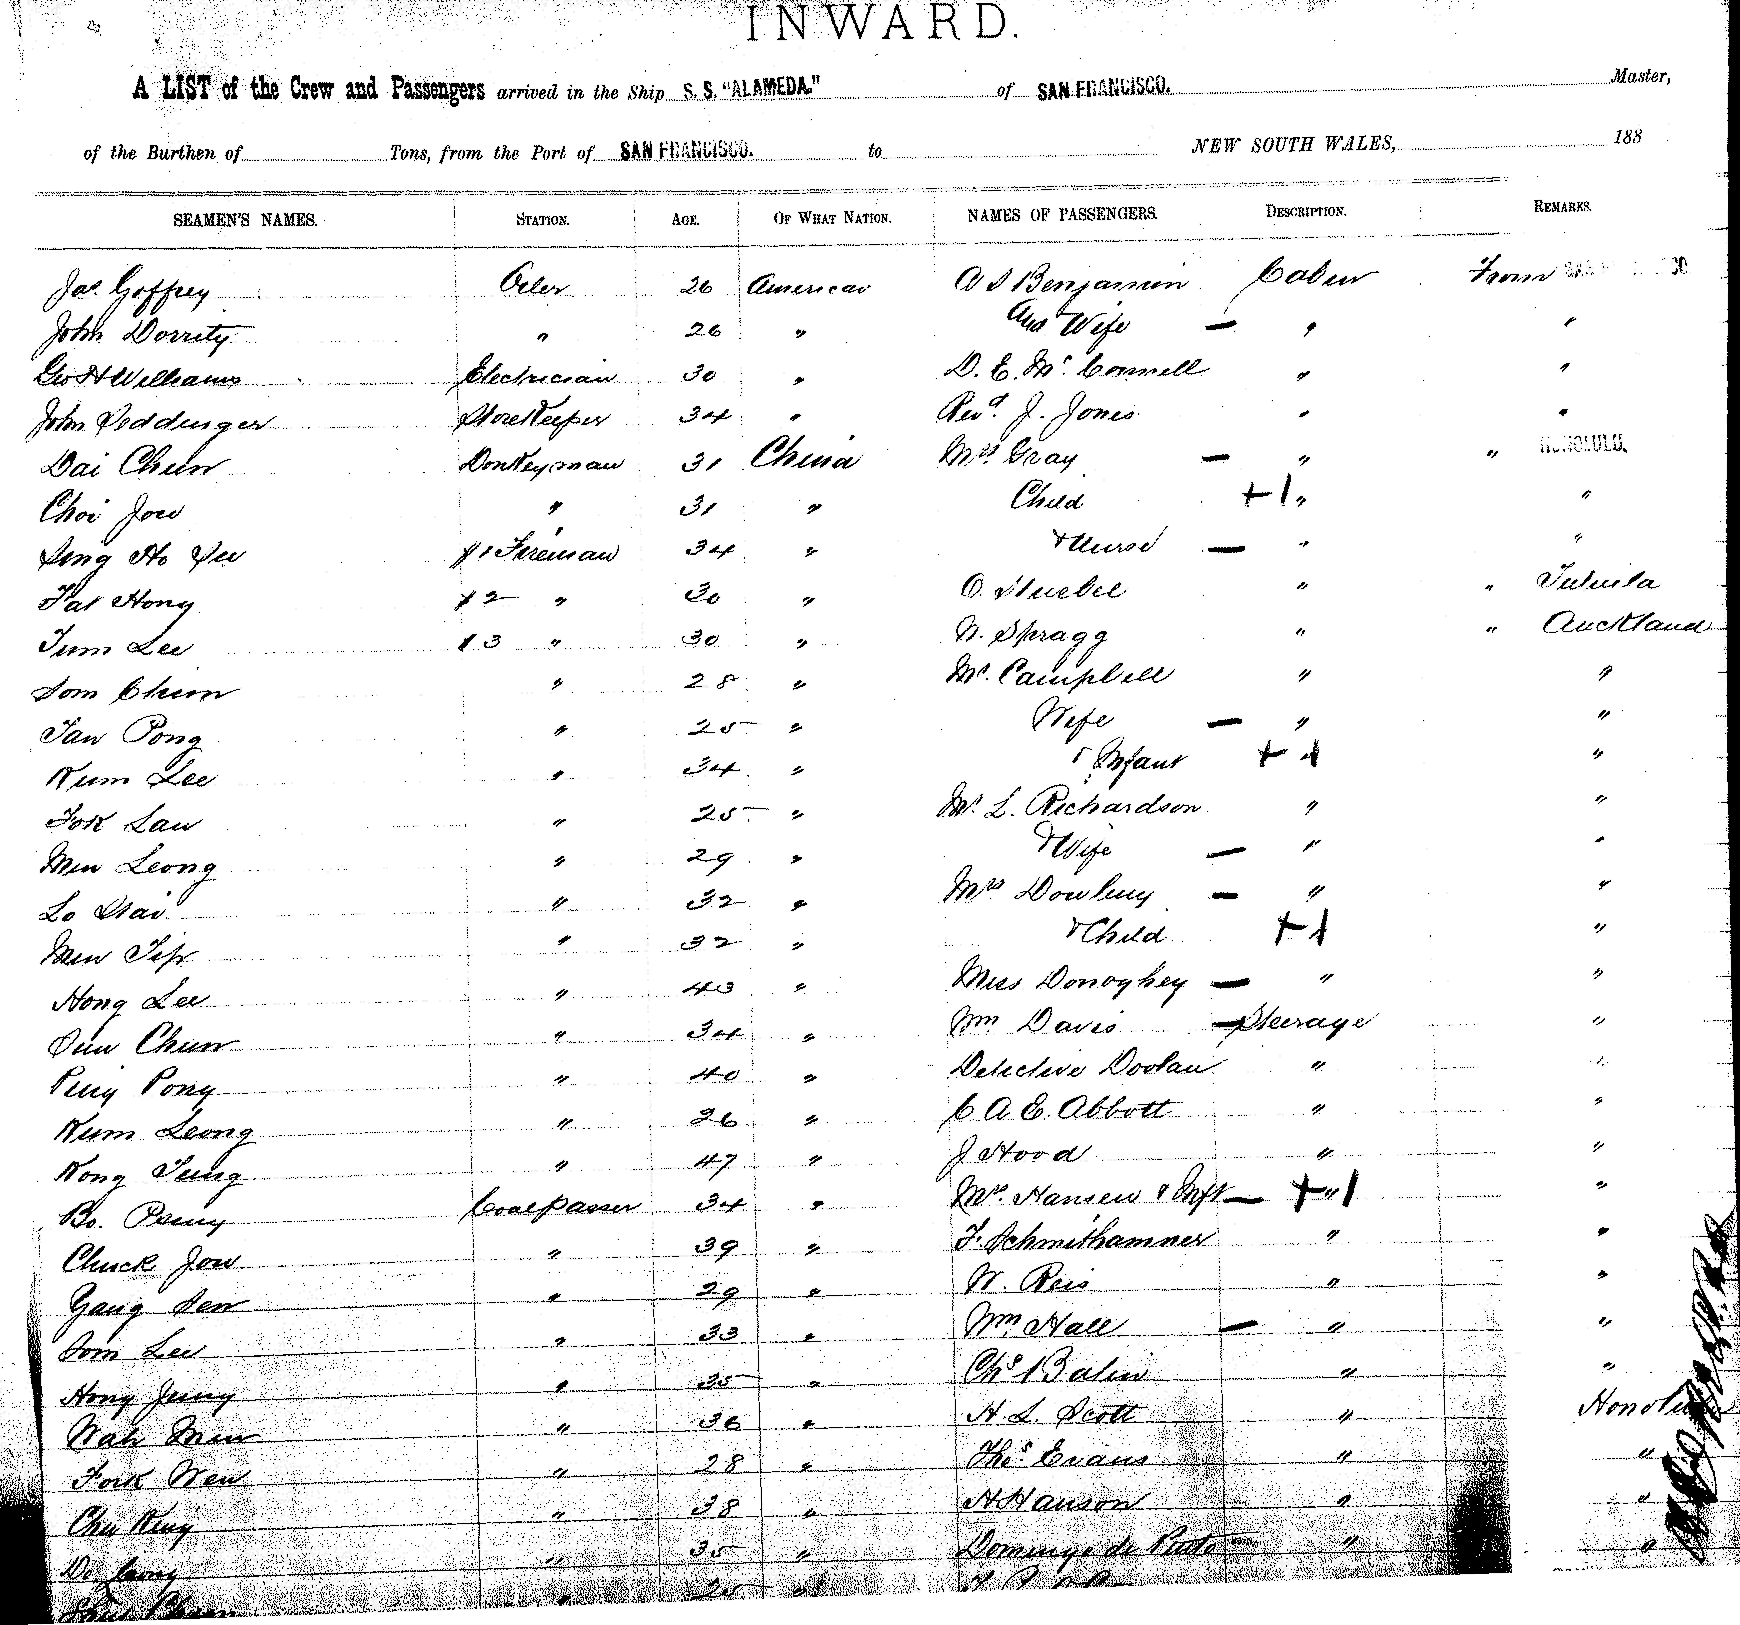 INWARD.
A LIST of the Crew and Passengers arrived in the Ship S. S. "ALAMEDA." of SAN FRANCISCO. Master,
of the Burthen of Tons, from the Port of SAN FRANCISCO. to NEW SOUTH WALES, 188
SEAMEN'S NAMES. STATION. AGE. OF WHAT NATION. NAMES OF PASSENGERS. DESCRIPTION. REMARKS.
Jas. Goffrey Oiler 26 American A S Benjamin Cabin From
John Dorrity " 26 " And Wife — " "
Geo H Williams Electrician 30 " D. E. Mc. Connell " "
John Seddinger Storekeeper 34 " Revd. J. Jones " "
Dai Chun Donkeyman 31 China Mrs Gray — " " HONOLULU.
Choi Jow " 31 " Child +1 " "
Sing Ho Fireman 34 " & Nurse — " "
Fat Hong 2 " 30 " O. Stuebel " " Tutuila
Tum Lee 3 " 30 " W. Spragg " " Auckland
Som Chun " 28 " Mr. Campbell " "
Tan Pong " 25 " Wife — " "
Kum Lee " 34 " & Infant + 1 "
Fok Lau " 25 " Mr. L. Richardson " "
Men Leong " 29 " & Wife — " "
Lo " 32 " Mrs — " "
Men Yip " 32 " & Child + 1 "
Hong Lee " 43 " Miss Donoghey — " "
Sun Chun " 34 " Wm Davis — Steerage "
Ping Pong " 40 " Detective Doolan " "
Kum Leong " 26 " C A E. Abbott " "
Kong Tung " 47 " J Hood " "
Bo. Penny Coalpasser 34 " Mrs. Hansen & Inft — + " 1 "
Chuck Jow " 39 " F. Schmithamner " "
Gang Sen " 29 " W. Reis " "
Som Lee " 33 " Wm Hall — " "
Hong Jung " 35 " Chs " "
Wah Mun " 36 " H L. Scott " Honolulu
Fork Wen " 28 " Thos. Evans " "
Chu King " 38 " H Hanson " "
" 35 " Domingo de " "
25 "